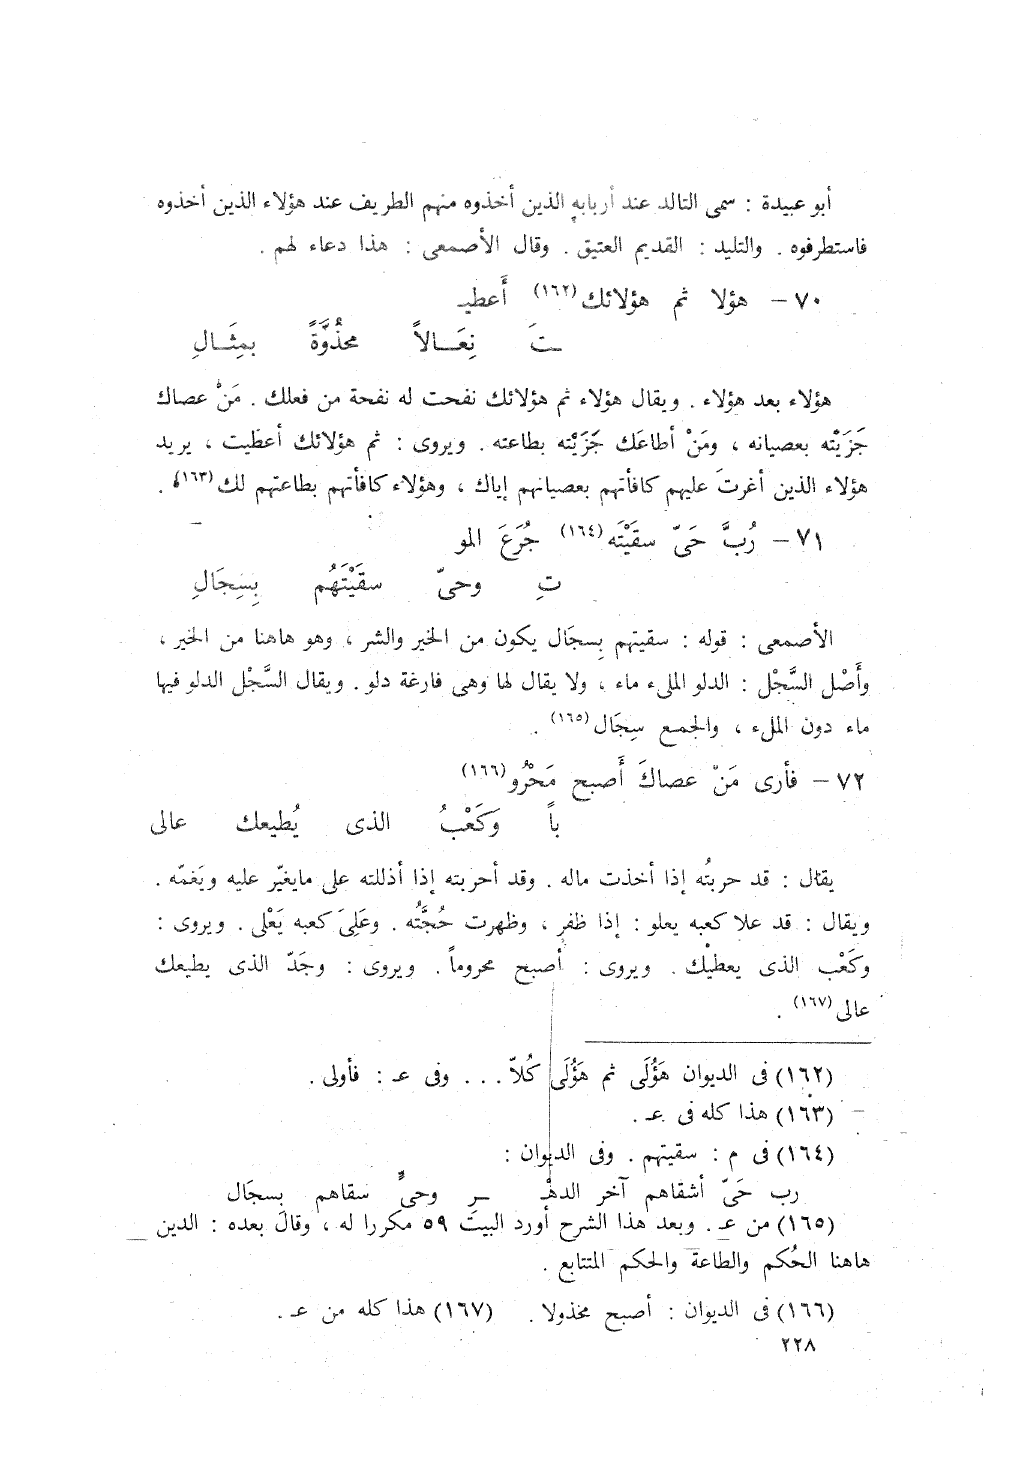 أبو عبيدة : سمى التالد عند أربابه الذين أخذوه منهم الطريف عند هؤلاء الذين أخذوه
فاستطرفوه . والتليد : القديم العتيق . وقال الأصمعى : هذا دعاء لهم .
٧٠ – هؤلا ثم هؤلائك (١٦٢) أَعطيـ
ـتَ نِعَــالاً محْذُوَّةً بمِثَــالِ
هؤلاء بعد هؤلاء . ويقال هؤلاء ثم هؤلائك نفحت له نفحة من فعلك . مَنْ عصاك
جَزَيْتْه بعصيانه ، ومَنْ أطاعَك جَزَيْته بطاعته . ويروى : ثم هؤلائك أعطيت ، يريد
هؤلاء الذين أغرتَ عليهم كافأتهم بعصيانهم إياك ، وهؤلاء كافأتهم بطاعتهم لك (١٦٣) .
٧١ – رُبَّ حَىّ سقَيْتَه (١٦٤) جُرَعَ المو
تِ وحىّ سقَيْتَهُم بِسِجَالِ
الأصمعى : قوله : سقيتهم بِسجَال يكون من الخير والشر ، وهو هاهنا من الخير ،
وأَصْل السَّجْل : الدلو الملىء ماء ، ولا يقال لها وهى فارغة دلو . ويقال السَّجْل الدلو فيها
ماء دون الملء ، والجمع سِجَال (١٦٥) .
٧٢ – فأرى مَنْ عصاكَ أَصبح مَحْرُو (١٦٦)
باً وَكَعْبُ الذى يُطيعك عالى
يقال : قد حربتُه إذا أخذت ماله . وقد أحربته إذا أذللته على مايغيّر عليه ويَغمّه .
ويقال : قد علا كعبه يعلو : إذا ظفر ، وظهرت حُجَّتُه . وعَلِىَ كعبه يَعْلى . ويروى :
وكَعْب الذى يعطيْك . ويروى : أصبح محروماً . ويروى : وجَدّ الذى يطيعك
عالى (١٦٧) .
(١٦٢) فى الديوان هَؤُلَى ثم هَؤُلَى كُلاّ . . . وفى عـ : فأولى .
(١٦٣) هذا كله فى عـ .
(١٦٤) فى م : سقيتهم . وفى الديوان :
رب حَىّ أشقاهم آخر الدهْـ ـرِ وحىٍّ سقاهم بِسجَال
(١٦٥) من عـ . وبعد هذا الشرح أورد البيت ٥٩ مكررا له ، وقال بعده : الدين
هاهنا الحُكم والطاعة والحكم المتتابع .
(١٦٦) فى الديوان : أصبح مخذولا . (١٦٧) هذا كله من عـ .
٢٢٨